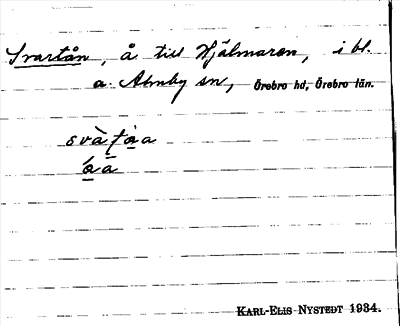 Svartån, å till Hjälmaren, i bl.
a. Almby sn, Örebro hd, Örebro län.
svàṭa̱a
á̱a̱
KARL-ELIS NYSTEDT 1934.